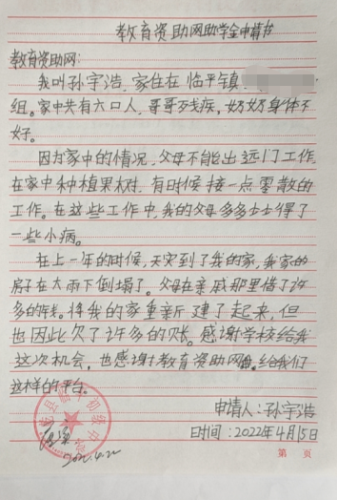 教育资助网助学金申请书
教育资助网:
我叫孙宇浩,家住在临平镇
组。家中共有六口人,哥哥残疾,奶奶身体不
好。
因为家中的情况,父母不能出远门工作,
在家中种植果树,有时候接一点零散的
工作。在这些工作中,我的父母多多少少得了
一些小病。
在上一年的时候,天灾到了我的家,我家的
房子在大雨下倒塌了。父母在亲戚那里借了许
多的钱。将我的家重新建了起来,但
也因此欠了许多的账。感谢学校给我
这次机会,也感谢教育资助网给我们
这样的平台。
申请人:孙宇浩
日时间:2022年4月15日
2022.4.22
第 页